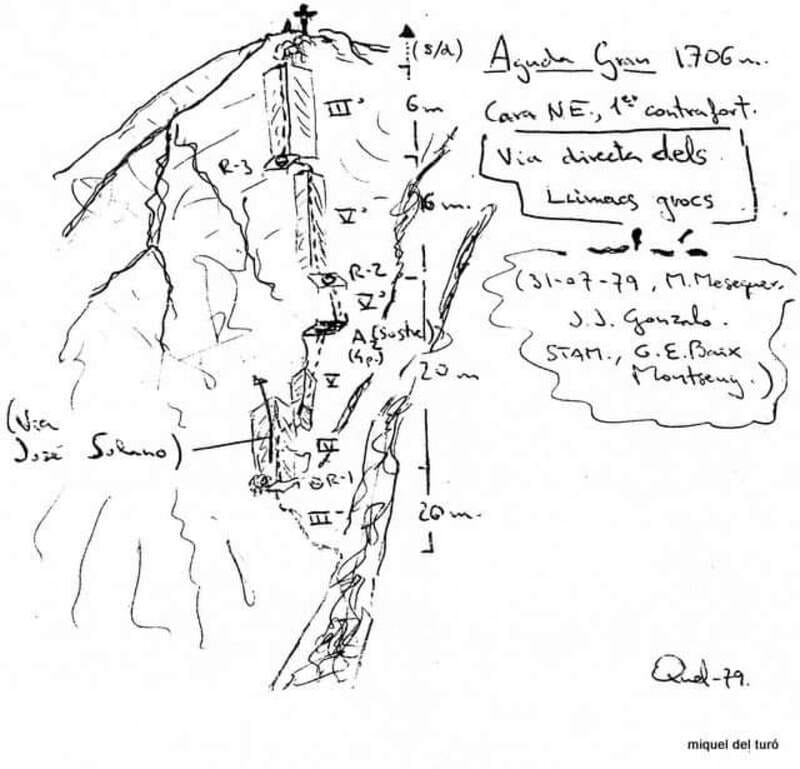 (s/d)
Aguda Gran 1.706 m.
Cara N.E., 1er contrafort.
Via directa dels
Llimacs grocs
(31-07-79, M. Meseguer.
J.J. Gonzalo.
STAM., G.E. Baix
Montseny.)
III°
6 m
R-3
V°
16 m.
R-2
V°
A2 (Sostre)
(4p.)
V
20 m
(Via
José Solano)
IV
R-1
III-
20 m.
79.
miquel del turó